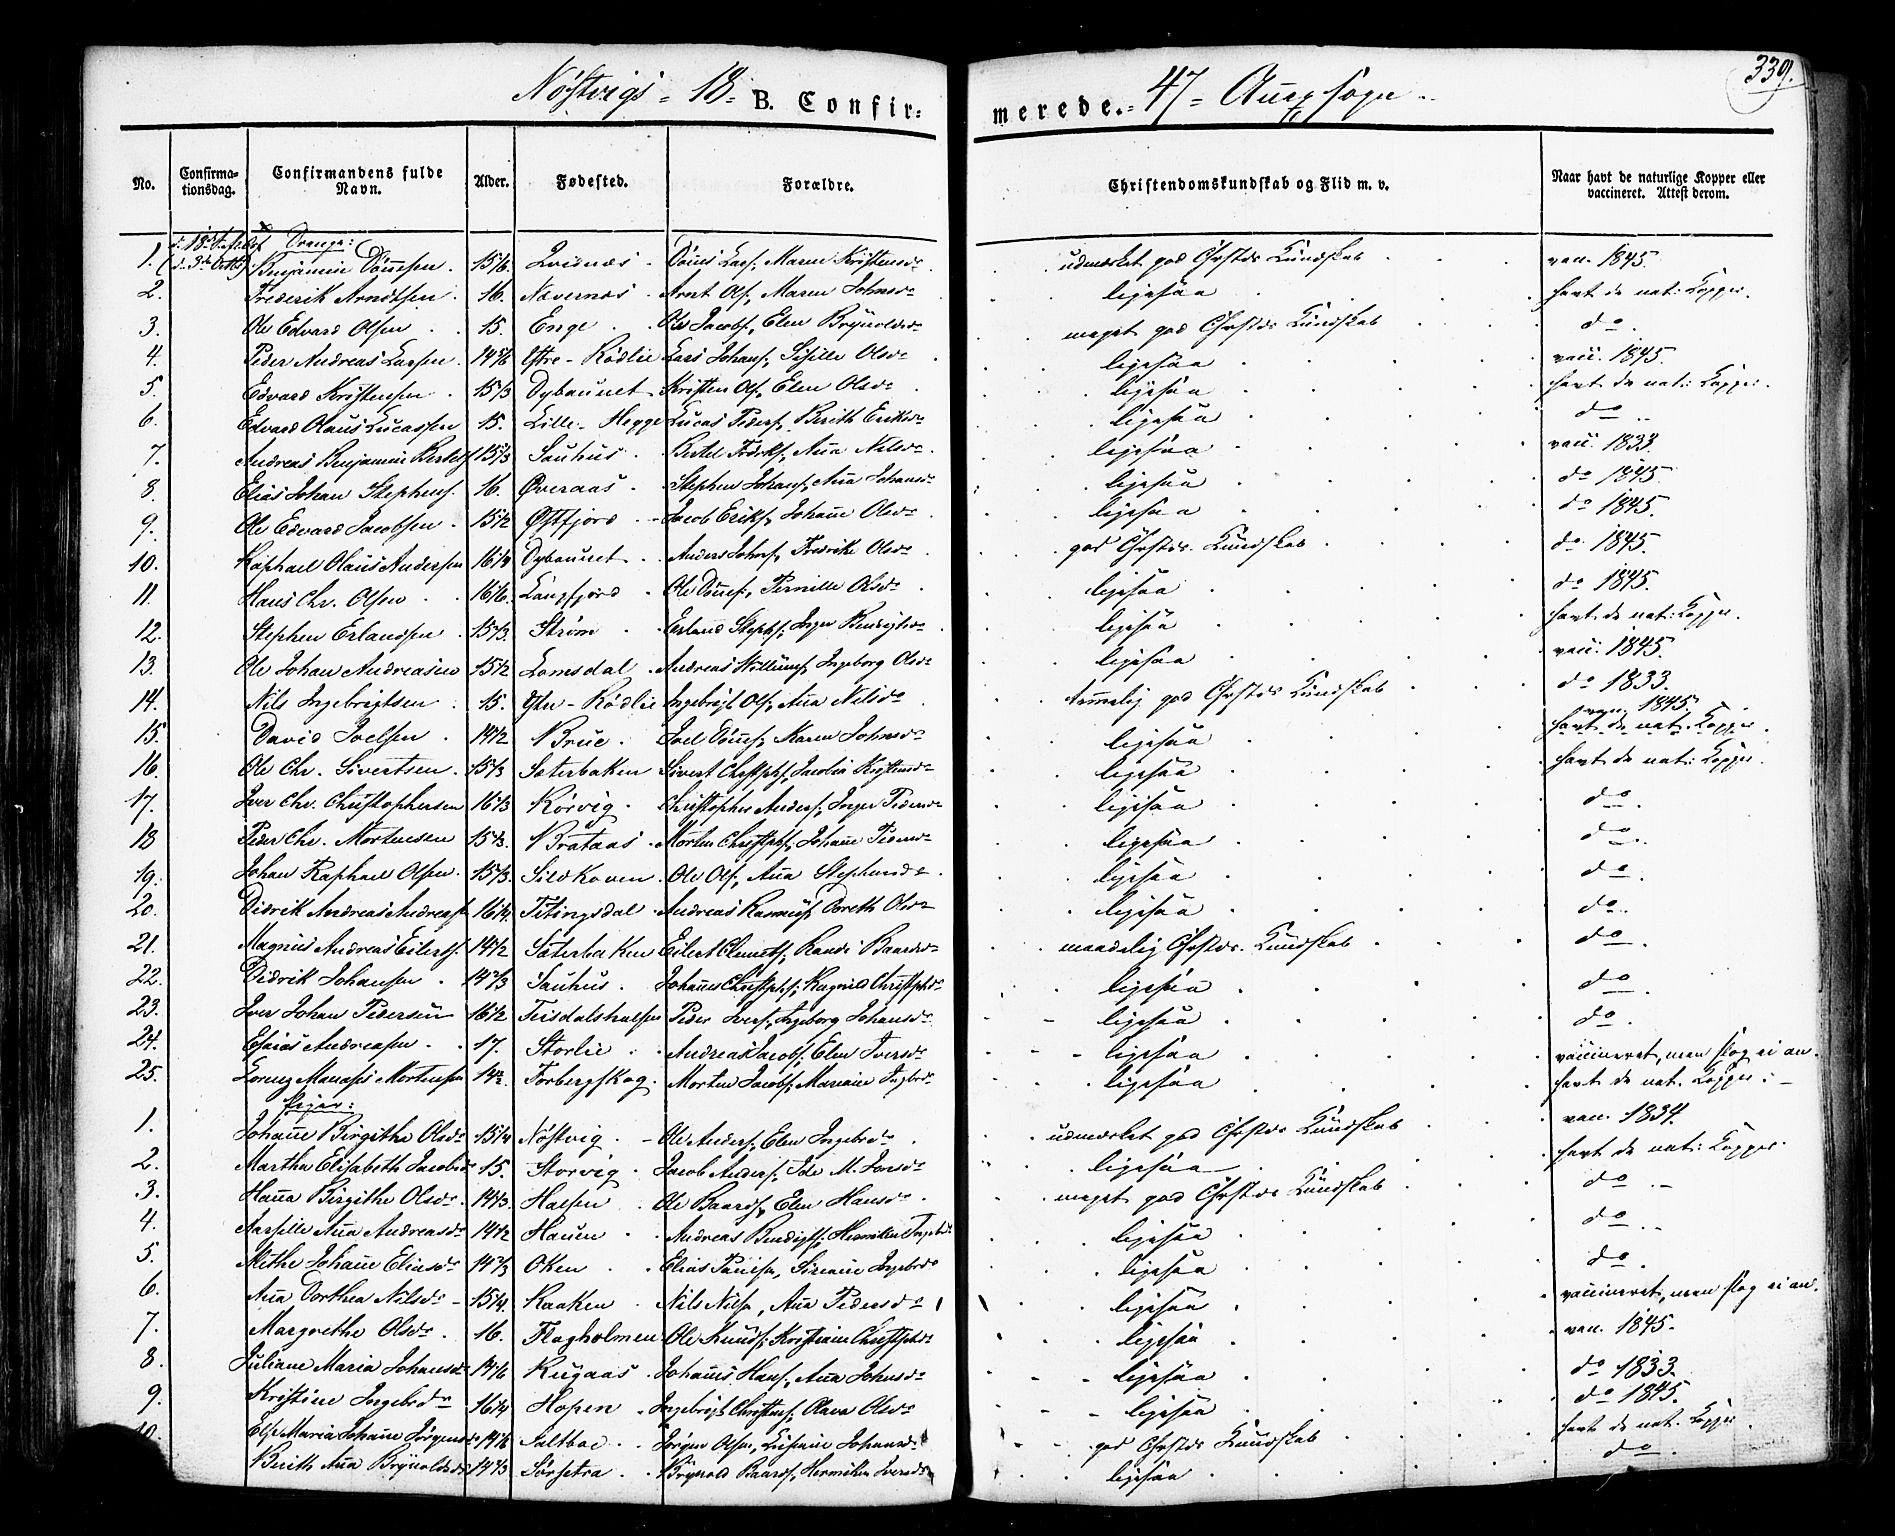 Nöstvigs - 18- B. Confirmerede.- 47- Annexsogn
339.
No. Confirmationsdag. Confirmandens fulde Navn. Alder. Fødested. Forældre. Christendomskundskab og Flid m. v. Naar havt de naturlige Kopper eller vaccineret. Attest derom.
Drenge:
1. Benjamin Dönnesen. 15 1/6. Qvidnæs Dönnes Lars. Maren Kristensdr udmærket god Chrstds Kundskab vac. 1845.
2. Frederik Arndtsen. 16. Nævernæs Arnt Ols. Maren Johnsdr ligesaa havt de nat: Kopper.
3. Ole Edvard Olsen 15. Enge Ole Jacobs. Elen Brynoldsdr meget god Chrstds Kundskab do.
4. Peder Andreas Larsen. 14 5/6 Øfre-Rödlie Lars Johans. Sissille Olsdr ligesaa vacc. 1845.
5. Edvard Kristensen 15 1/3 Dybaunet Kristen Ols. Elen Olsdr ligesaa havt de nat: Kopper.
6. Edvard Olaus Lucassen 15. Lille-Hegge Lucas Peders. Berith Eriksdr ligesaa do
7. Andreas Benjamin Bertels. 15 2/3 Sauhus. Bertel Fridriks. Anna Nilsdr ligesaa vacc. 1833.
8. Elias Johan Stephens. 16. Øveraas Stephen Johans. Anna Johansdr ligesaa do 1845.
9. Ole Edvard Jacobsen 15 1/2 Østfjord Jacob Eriks. Johanne Olsdr ligesaa do 1845.
10. Raphael Olaus Andersen 16 1/4 Dybaunet Anders Johns. Fredrikke Olsdr god Chrstds. Kundskab do. 1845.
11. Hans Chr. Olsen 16 1/6. Langfjord Ole Dönnes. Pernille Olsdr ligesaa do 1845.
12. Stephen Erlandsen 15 2/3. Ström Erland Stephs. Inger Bendigtsdr ligesaa havt de nat: Kopper.
13. Ole Johan Andreasen 15 1/2 Lomsdal Andreas Willums. Ingeborg Olsdr ligesaa vacc. 1845.
14. Nils Ingebrigtsen 15. Øfre-Rödlie Ingebrigt Ols. Anna Nilsdr temmelig god Chrstds Kundskab do 1833.
15. David Joelsen 14 1/2 Brue. Joel Dönnes. Karen Johnsdr ligesaa vacc. 1845. havt de nat. Kopper
16. Ole Chr. Sivertsen. 15 1/3 Sæterbakken Sivert Christophs. Jacobia Kristensdr ligesaa havt de nat: Kopper
17. Iver Chr. Christophersen 16 1/3 Körvig. Christopher Anders. Inger Pedersdr ligesaa do.
18 Peder Chr. Mortensen 15 2/3. Brataas Morten Christophs. Johanne Pedersdr ligesaa do.
19. Johan Raphael Olsen. 15 1/3. Sildkoven. Ole Ols. Anna Stephensdr ligesaa do.
20. Didrik Andreas Andreass. 16 1/4. Fitingsdal Andreas Rasmuss. Doreth Olsdr ligesaa do.
21. Magnus Andreas Eilerts. 14 1/2 Sæterbakken Eilert Clemets. Randi Baardsdr maadelig Chrstds. Kundskab do.
22. Didrik Johansen 14 2/3 Sauhus. Johannes Christophs. Ragnild Christophdr ligesaa do
23. Iver Johan Pedersen 16 1/2 Terdalshalsen Peder Ivers. Ingeborg Johansdr ligesaa do.
24. Esaias Andreasen 17. Storlie Andreas Jacobs. Elen Iversdr ligesaa vaccineret, men slog ei an.
25. Lorenz Manasis Mortensen 14 1/2. Forbergskog. Morten Jacobs. ligesaa havt de nat. Kopper.
Piger:
1. Johanne Birgitha Olsdr 15 1/4 Nöstvig. Ole Anders. Elen Ingebrdr udmærket god Chrstds Kundskab vac. 1834.
2. Martha Elisabeth Jacobsdr 15. Storvig. Jacob Anders. Ide M. Joesdr ligesaa havt de nat: Kopper.
3. Hanna Birgithe Olsdr. 14 2/3. Halsen Ole Baards. Elen Hansdr meget god Chrstds Kundskab do
4. Anna Andreasdr 14 1/2 Hauen Andreas Bendigts. ligesaa do
5. Methe Johanne Eliasdr 14 2/3 Oken Elias Sirianne Ingebrdr ligesaa do.
6. Anna Dorthea Nilsdr 15 1/4. Kaaken Nils Nilsn, Anna Pedersdr ligesaa vaccineret, men slog ei an.
7. Margrethe Olsdr 16. Flagholmen Ole Knuds. Kristiane Christophdr ligesaa vac. 1845.
8. Juliane Maria Johansdr 14 5/6 Rugaas Johannes Hans. Anna Johnsdr ligesaa do 1833.
9. Kristine Ingebrdr 16 1/4 Hopen Ingebrigt Christens. Olava Olsdr ligesaa do 1845.
10. Else Maria Johanne Jörgensdr 14 5/6 Saltbae Jörgen Olsen, Johansdr god Chrstds Kundskab havt de nat. Kopper
Berith Anna Brynoldsdr 14 2/3 Sörsetra Brynold Baards. Hermikke Iversdr ligesaa do.